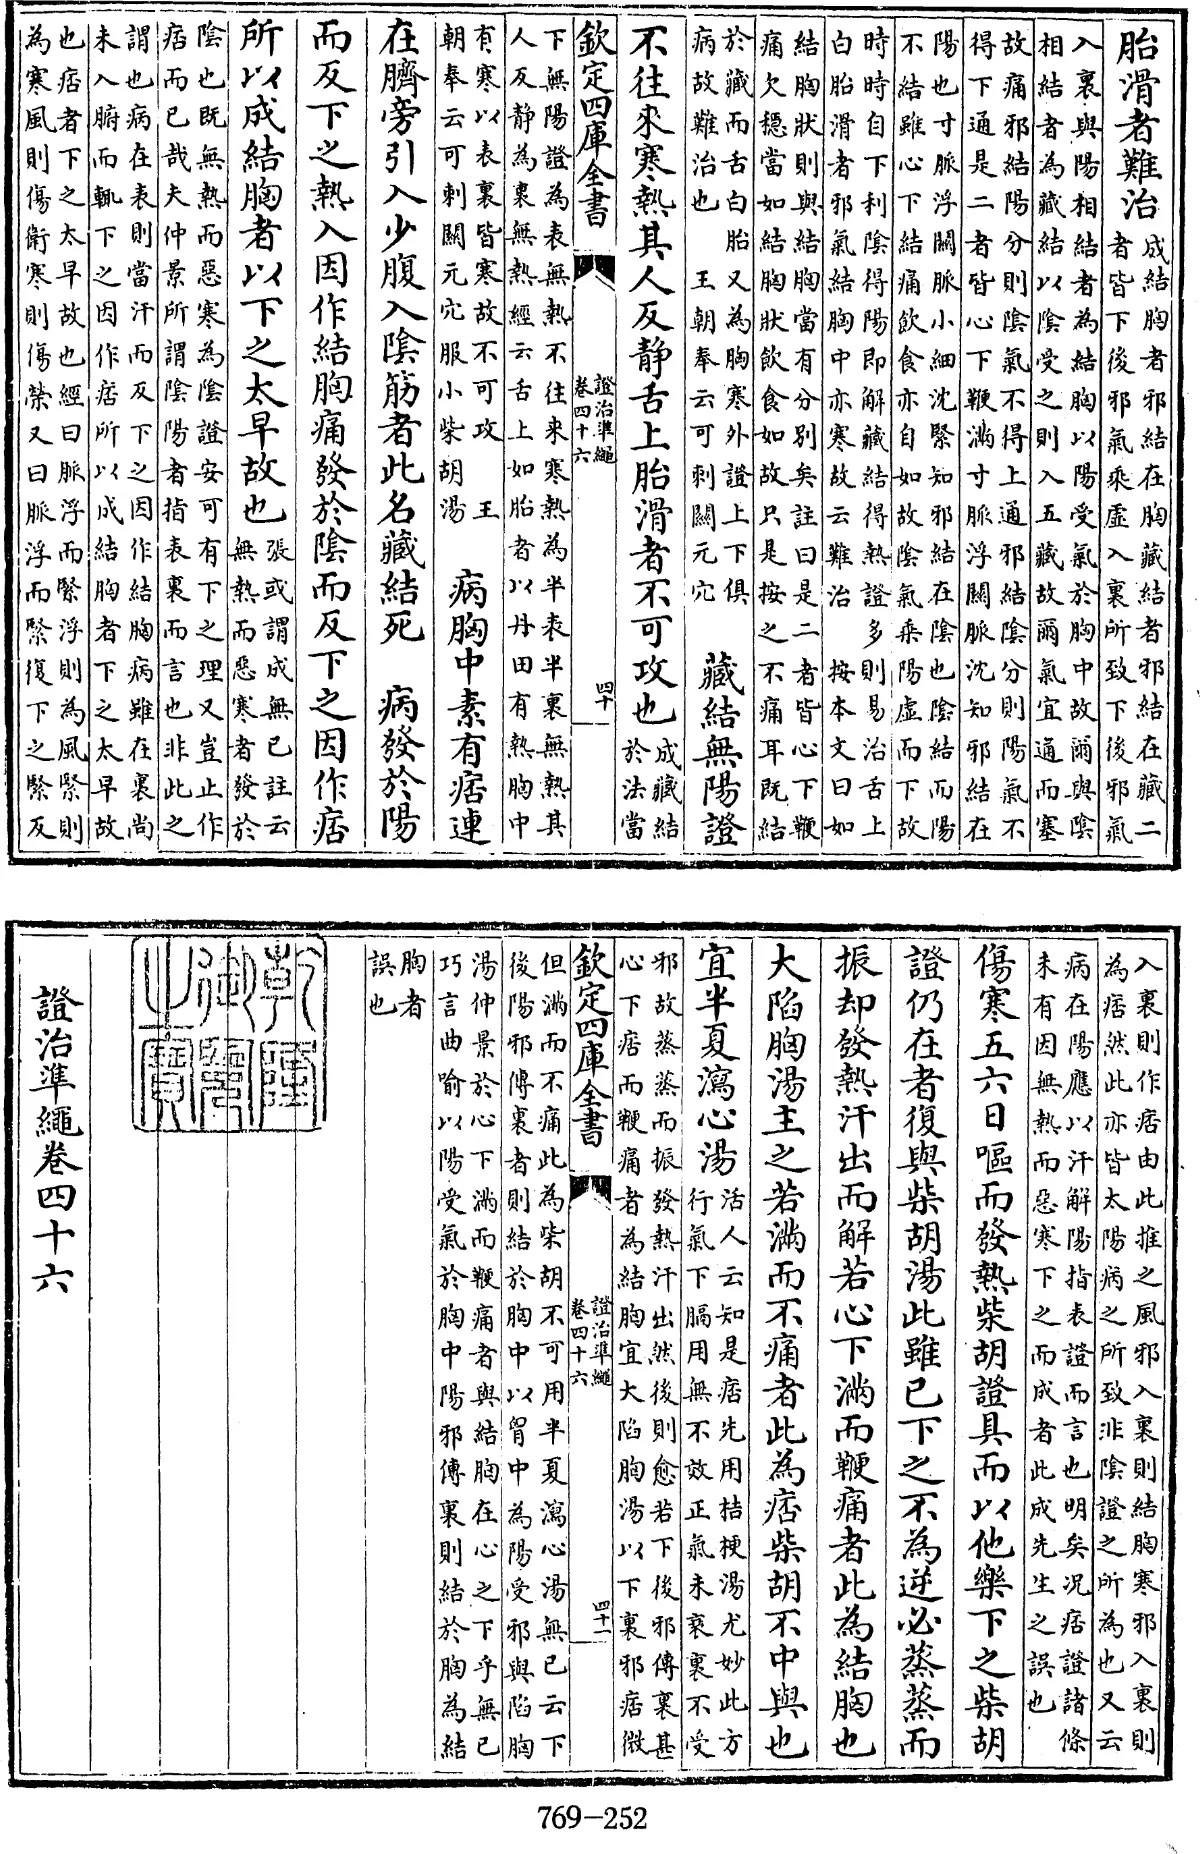 胎滑者難治
成結胸者邪結在胸藏結者邪結在藏二
者皆下後邪氣乘虛入裏所致下後邪氣
入裏與陽相結者為結胸以陽受氣於胸中故爾與陰
相結者為藏結以陰受之則入五藏故爾氣宜通而塞
故痛邪結陽分則陰氣不得上通邪結陰分則陽氣不
得下通是二者皆心下鞕滿寸脈浮關脈沈知邪結在
陽也寸脈浮關脈小細沈緊知邪結在陰也陰結而陽
不結雖心下結痛飲食亦自如故陰氣乘陽虛而下故
時時自下利陰得陽即解藏結得熱證多則易治舌上
白胎滑者邪氣結胸中亦寒故云難治 按本文曰如
結胸狀則與結胸當有分別矣註曰是二者皆心下鞕
痛欠穩當如結胸狀飲食如故只是按之不痛耳既結
於藏而舌白胎又為胸寒外證上下俱
病故難治也 王朝奉云可刺關元穴
藏結無陽證
不往來寒熱其人反静舌上胎滑者不可攻也
成藏結
於法當
欽定四庫全書
證治準繩
卷四十六
四十
下無陽證為表無熱不往來寒熱為半表半裏無熱其
人反静為裏無熱經云舌上如胎者以丹田有熱胸中
有寒以表裏皆寒故不可攻 王
朝奉云可刺關元穴服小柴胡湯
病胸中素有痞連
在臍旁引入少腹入陰筋者此名藏結死 病發於陽
而反下之熱入因作結胸痛發於陰而反下之因作痞
所以成結胸者以下之太早故也
張或謂成無已註云
無熱而惡寒者發於
陰也既無熱而惡寒為陰證安可有下之理又豈止作
痞而已哉夫仲景所謂陰陽者指表裏而言也非此之
謂也病在表則當汗而反下之因作結胸病雖在裏尚
未入腑而輒下之因作痞所以成結胸者下之太早故
也痞者下之太早故也經曰脈浮而緊浮則為風緊則
為寒風則傷衛寒則傷榮又曰脈浮而緊復下之緊反
入裏則作痞由此推之風邪入裏則結胸寒邪入裏則
為痞然此亦皆太陽病之所致非陰證之所為也又云
病在陽應以汗解陽指表證而言也明矣況痞證諸條
未有因無熱而惡寒下之而成者此成先生之誤也
傷寒五六日嘔而發熱柴胡證具而以他藥下之柴胡
證仍在者復與柴胡湯此雖已下之不為逆必蒸蒸而
振却發熱汗出而解若心下滿而鞕痛者此為結胸也
大陷胸湯主之若滿而不痛者此為痞柴胡不中與也
宜半夏瀉心湯
活人云知是痞先用桔梗湯尤妙此方
行氣下膈用無不效正氣未衰裏不受
邪故蒸蒸而振發熱汗出然後則愈若下後邪傳裏甚
心下痞而鞕痛者為結胸宜大陷胸湯以下裏邪痞微
欽定四庫全書
證治準繩
卷四十六
四十一
但滿而不痛此為柴胡不可用半夏瀉心湯無已云下
後陽邪傳裏者則結於胸中以胷中為陽受邪與陷胸
湯仲景於心下滿而鞕痛者與結胸在心之下乎無已
巧言曲喻以陽受氣於胸中陽邪傳裏則結於胸為結
胸者
誤也
乾隆
御覽
之寶
證治準繩卷四十六
769-252